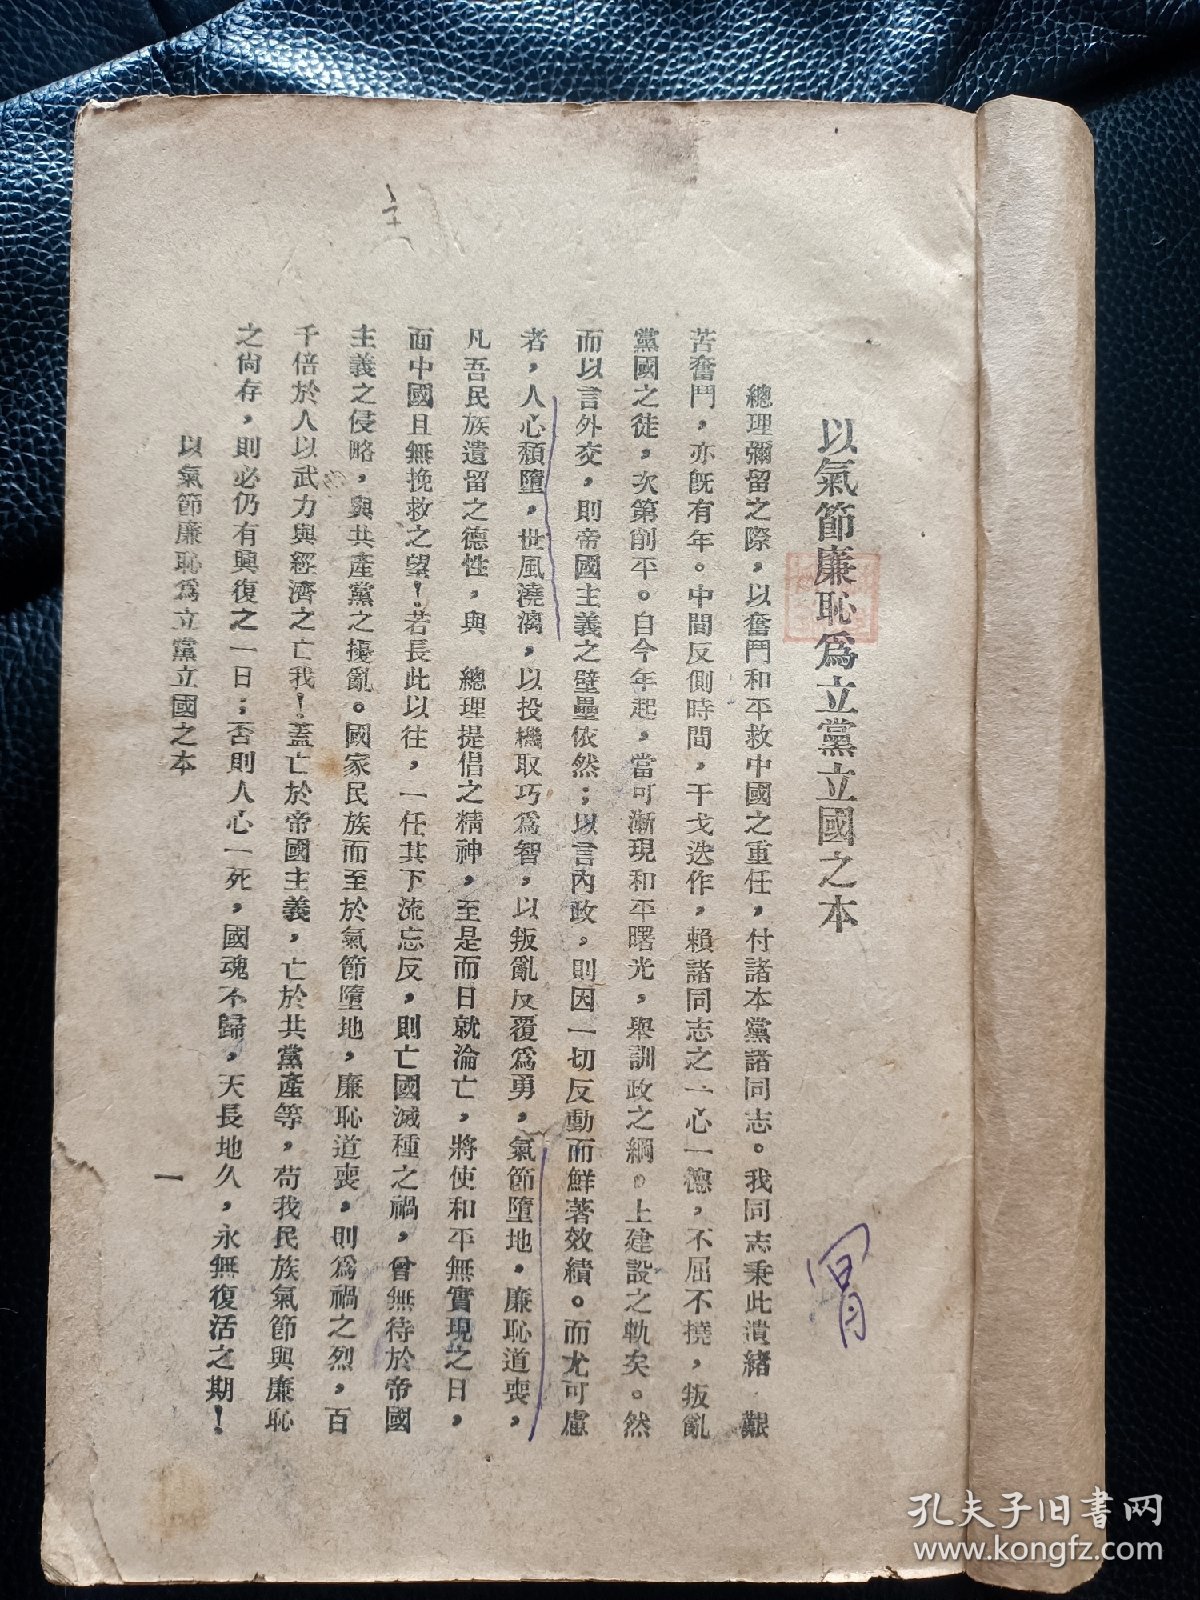 以氣節廉恥爲立黨立國之本
總理彌留之際，以奮鬥和平救中國之重任，付諸本黨諸同志。我同志秉此遺緒 艱
苦奮鬥，亦旣有年。中間反側時間，干戈迭作，賴諸同志之一心一德，不屈不撓，叛亂
黨國之徒，次第削平。自今年起，當可漸現和平曙光，舉訓政之綱。上建設之軌矣。然
而以言外交，則帝國主義之壁壘依然；以言內政，則因一切反動而鮮著效績。而尤可慮
者，人心頹墮，世風澆漓，以投機取巧爲智，以叛亂反覆爲勇，氣節墮地，廉恥道喪，
凡吾民族遺留之德性，與 總理提倡之精神，至是而日就淪亡，將使和平無實現之日，
面中國且無挽救之望！若長此以往，一任其下流忘反，則亡國滅種之禍，曾無待於帝國
主義之侵略，與共產黨之擾亂。國家民族而至於氣節墮地，廉恥道喪，則爲禍之烈，百
千倍於人以武力與經濟之亡我！蓋亡於帝國主義，亡於共黨產等，苟我民族氣節與廉恥
之尙存，則必仍有興復之一日；否則人心一死，國魂不歸，天長地久，永無復活之期！
以氣節廉恥爲立黨立國之本
一
孔夫子旧书网
www.kongfz.com